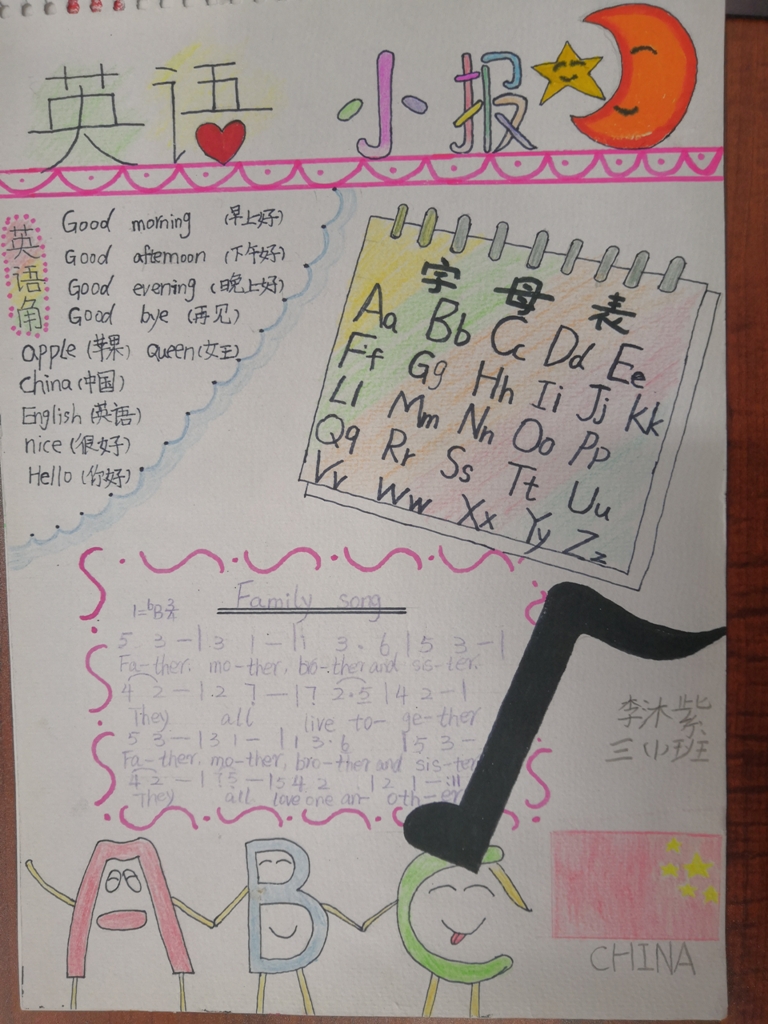 英语 小报
英语角
Good morning (早上好)
Good afternoon (下午好)
Good evening (晚上好)
Good bye (再见)
apple (苹果) Queen (女王)
China (中国)
English (英语)
nice (很好)
Hello (你好)
字母表
Aa Bb Cc Dd Ee
Ff Gg Hh Ii Jj Kk
Ll Mm Nn Oo Pp
Qq Rr Ss Tt Uu
Vv Ww Xx Yy Zz
Family song
1=ᵇB 3/4
5 3 – | 3 1 – | 1 3 . 6 | 5 3 – |
Fa-ther, mo-ther, bro-ther and sis-ter.
4 2 – | 2 7 – | 7 2·5 | 4 2 – |
They all live to-ge-ther
5 3 – | 3 1 – | 1 3·6 | 5 3 –
Fa-ther, mo-ther, bro-ther and sis-ter
They all love one an-oth-er
李沐紫
三(小)班
A B C
CHINA